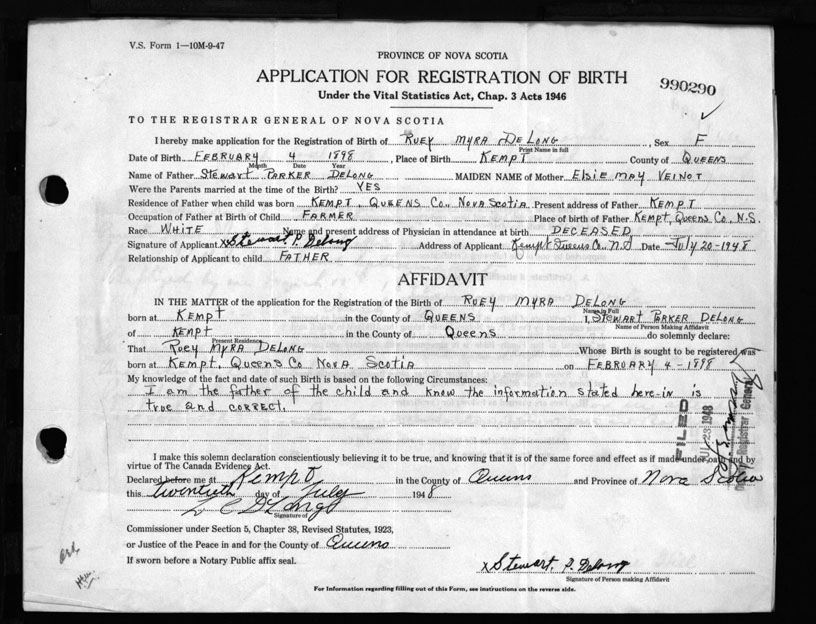 V.S. Form 1—10M-9-47
PROVINCE OF NOVA SCOTIA
APPLICATION FOR REGISTRATION OF BIRTH
990290
Under the Vital Statistics Act, Chap. 3 Acts 1946
TO THE REGISTRAR GENERAL OF NOVA SCOTIA
I hereby make application for the Registration of Birth of RUEY MYRA DELONG, Sex F
Print Name in full
Date of Birth FEBRUARY 4 1898, Place of Birth KEMPT County of QUEENS
Month Date Year
Name of Father STEWART PARKER DELONG MAIDEN NAME of Mother ELSIE MAY VEINOT
Were the Parents married at the time of the Birth? YES
Residence of Father when child was born KEMPT, QUEENS CO., NOVA SCOTIA Present address of Father KEMPT
Occupation of Father at Birth of Child FARMER Place of birth of Father KEMPT, QUEENS CO., N.S.
Race WHITE Name and present address of Physician in attendance at birth DECEASED
Signature of Applicant x Stewart P. Delong Address of Applicant Kempt Queens Co., N.S Date July 20-1948
Relationship of Applicant to child FATHER
AFFIDAVIT
IN THE MATTER of the application for the Registration of the Birth of RUEY MYRA DELONG
Name in Full
born at KEMPT in the County of QUEENS I, STEWART PARKER DELONG
Name of Person Making Affidavit
of KEMPT in the County of Queens do solemnly declare:
Present Residence
That RUEY MYRA DELONG Whose Birth is sought to be registered was
born at KEMPT, QUEENS CO NOVA SCOTIA on FEBRUARY 4-1898
My knowledge of the fact and date of such Birth is based on the following Circumstances:
I am the father of the child and know the information stated here-in is
true and correct.
FILED
JUL 23 1948
Deputy Registrar General
I make this solemn declaration conscientiously believing it to be true, and knowing that it is of the same force and effect as if made under oath and by
virtue of The Canada Evidence Act.
Declared before me at Kempt in the County of Queens and Province of Nova Scotia
this twentieth day of July 1948
L C DeLong
Signature of
Commissioner under Section 5, Chapter 38, Revised Statutes, 1923,
or Justice of the Peace in and for the County of Queens
If sworn before a Notary Public affix seal.
x Stewart. P. Delong
Signature of Person making Affidavit
For Information regarding filling out of this Form, see instructions on the reverse side.